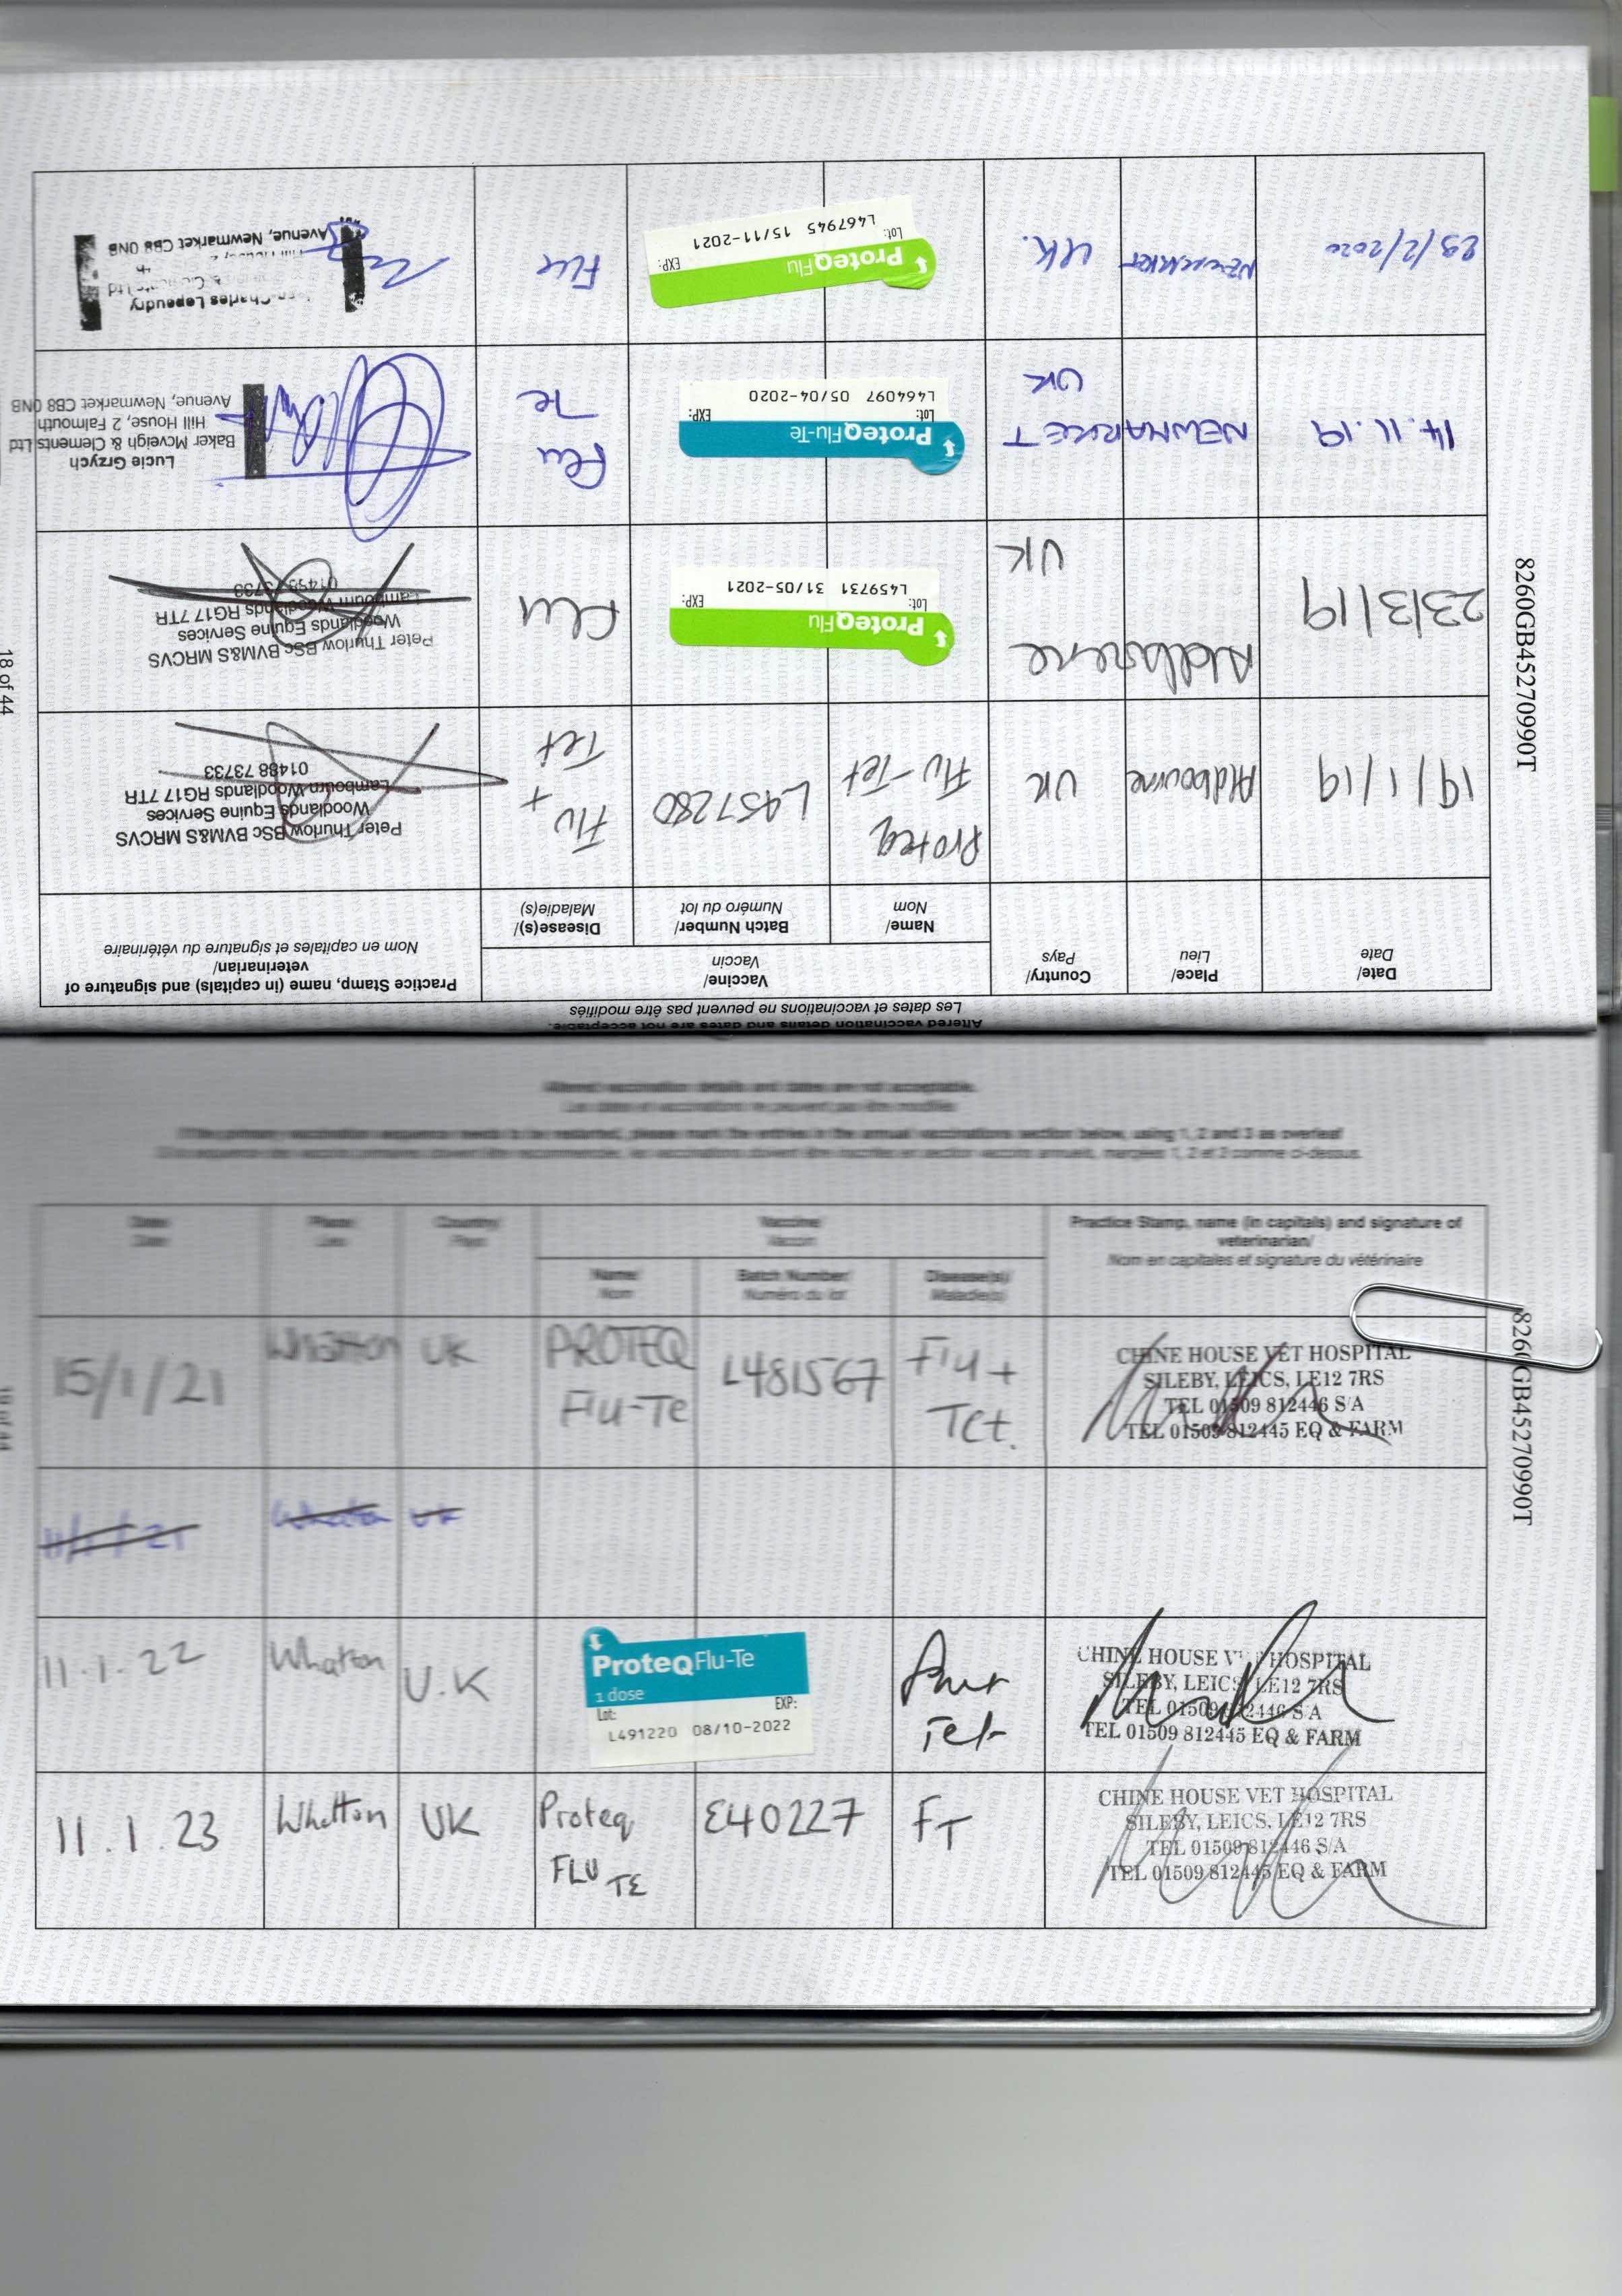 Altered vaccination details and dates are not acceptable.
Les dates et vaccinations ne peuvent pas être modifiés
Date/
Date
Place/
Lieu
Country/
Pays
Vaccine/
Vaccin
Name/
Nom
Batch Number/
Numéro du lot
Disease(s)/
Maladie(s)
Practice Stamp, name (in capitals) and signature of
veterinarian/
Nom en capitales et signature du vétérinaire
19/1/19
Aldbourne
UK
Proteq
Flu-Tet
L457280
Flu
+
Tet
Peter Thurlow BSc BVM&S MRCVS
Woodlands Equine Services
Lambourn Woodlands RG17 7TR
01488 73733
23/3/19
Aldbourne
UK
ProteqFlu
Lot:
EXP:
L459731 31/05-2021
Flu
Peter Thurlow BSc BVM&S MRCVS
Woodlands Equine Services
Lambourn Woodlands RG17 7TR
14.11.19
NEWMARKET
UK
ProteqFlu-Te
Lot:
EXP:
L464097 05/04-2020
Flu
Te
Lucie Grzych
Baker Mcveigh & Clements Ltd
Hill House, 2 Falmouth
Avenue, Newmarket CB8 0NB
/2/2020
NEWMARKET
UK.
ProteqFlu
Lot:
EXP:
L467945 15/11-2021
Flu
Charles Lepeudry
Avenue, Newmarket CB8 0NB
18 of 44
8260GB45270990T
Altered vaccination details and dates are not acceptable.
Les dates et vaccinations ne peuvent pas être modifiés
If the primary vaccination sequence needs to be restarted, please mark the entries in the annual vaccinations section below, using 1, 2 and 3 as overleaf
Date/
Date
Place/
Lieu
Country/
Pays
Vaccine/
Vaccin
Name/
Nom
Batch Number/
Numéro du lot
Disease(s)/
Maladie(s)
Practice Stamp, name (in capitals) and signature of
veterinarian/
Nom en capitales et signature du vétérinaire
15/1/21
Whatton
UK
PROTEQ
Flu-Te
L481567
Flu +
Tet.
CHINE HOUSE VET HOSPITAL
SILEBY, LEICS, LE12 7RS
TEL 01509 812446 S/A
TEL 01509 812445 EQ & FARM
11/1/21
Whatton
UK
11.1.22
Whatton
U.K
ProteqFlu-Te
1 dose
Lot:
EXP:
L491220 08/10-2022
Tet
CHINE HOUSE VET HOSPITAL
SILEBY, LEICS, LE12 7RS
TEL 01509 812446 S/A
TEL 01509 812445 EQ & FARM
11.1.23
Whatton
UK
Proteq
FLU TE
E40227
FT
CHINE HOUSE VET HOSPITAL
SILEBY, LEICS, LE12 7RS
TEL 01509 812446 S/A
TEL 01509 812445 EQ & FARM
8260GB45270990T